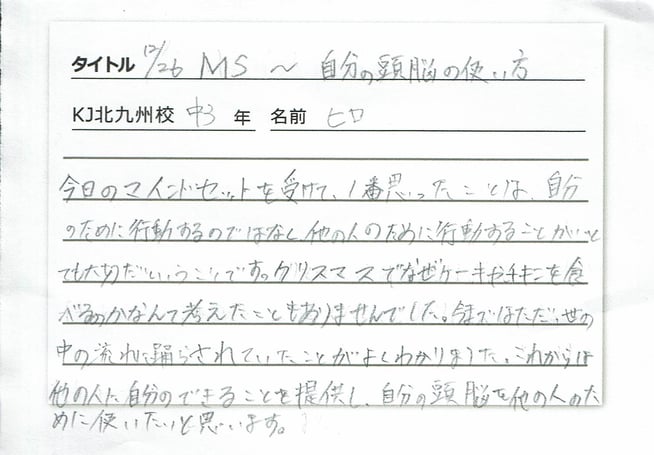 タイトル 12/26 MS ～ 自分の頭脳の使い方
KJ北九州校 中3 年 名前 ヒロ
今日のマインドセットを受けて、1番思ったことは、自分
のために行動するのではなく他の人のために行動することがとっ
ても大切だということです。クリスマスでなぜケーキやチキンを食
べるのかなんて考えたこともありませんでした。今まではただ、世の
中の流れに踊らされていたことがよくわかりました。これからは
他の人に自分のできることを提供し、自分の頭脳を他の人のた
めに使いたいと思います。